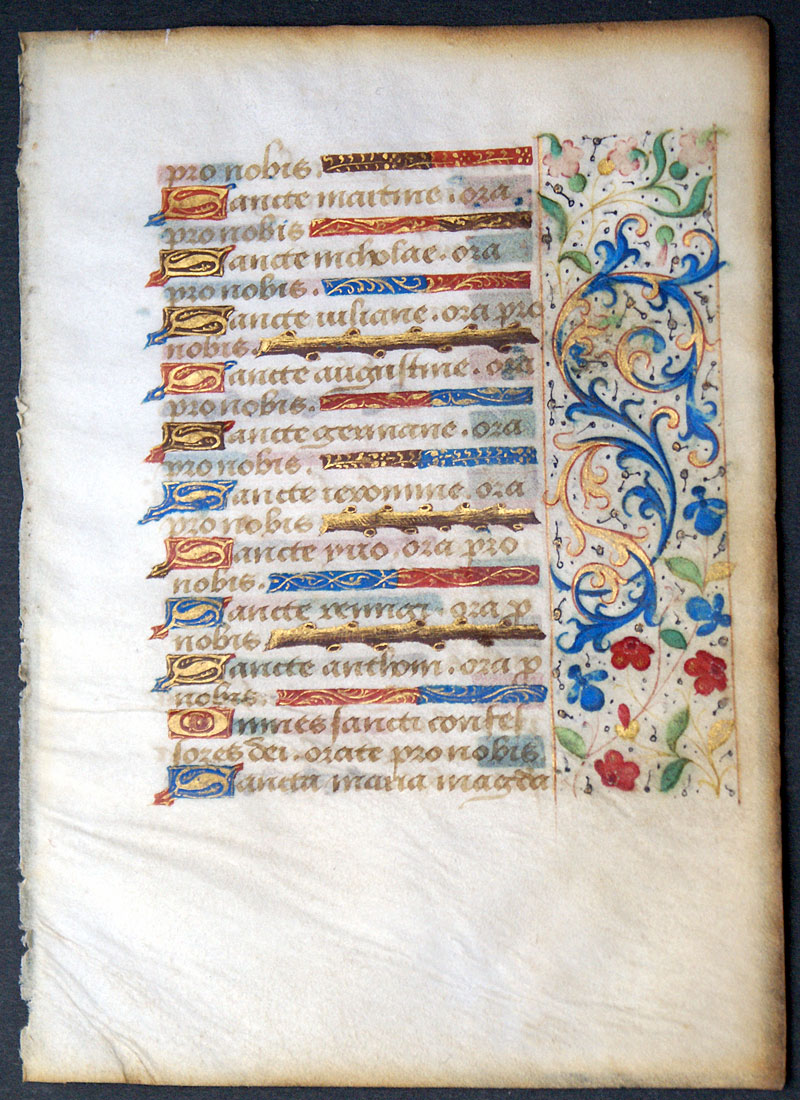 pro nobis.
Sancte martine. ora
pro nobis
Sancte nicholae. ora
pro nobis.
Sancte iuliane. ora pro
nobis.
Sancte augustine. ora
pro nobis.
Sancte germane. ora
pro nobis.
Sancte
ora
pro nobis
Sancte
ora pro
nobis.
Sancte
ora p
nobis
Sancte anthoni. ora p
nobis.
Omnes sancti confes
sores dei. orate pro nobis
Sancta maria magda